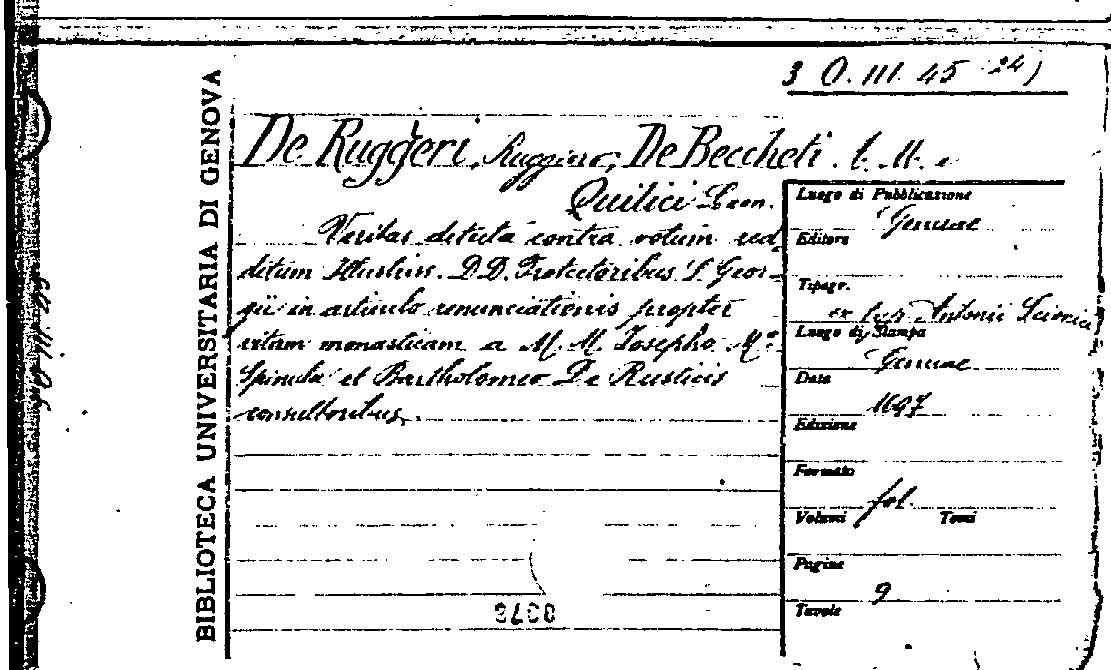 3 O. III. 45 24)
BIBLIOTECA UNIVERSITARIA DI GENOVA
De Ruggeri, Ruggero, De Beccheti. l. M. e
Quilici Leon.
Veritas detecta contra votum red-
ditum Illustriss. D.D. Protectoribus S. Geor-
gii in articulo renunciationis propter
vitam monasticam a M. M. Josepho Mª
Spinula et Bartholomeo De Rusticis
consultoribus.
Luogo di Pubblicazione
Genuae
Editore
Tipogr.
ex Antonii Scionici
Luogo di Stampa
Genuae
Data
1697
Edizione
Formato
fol.
Volumi Tomi
Pagine
9
Tavole